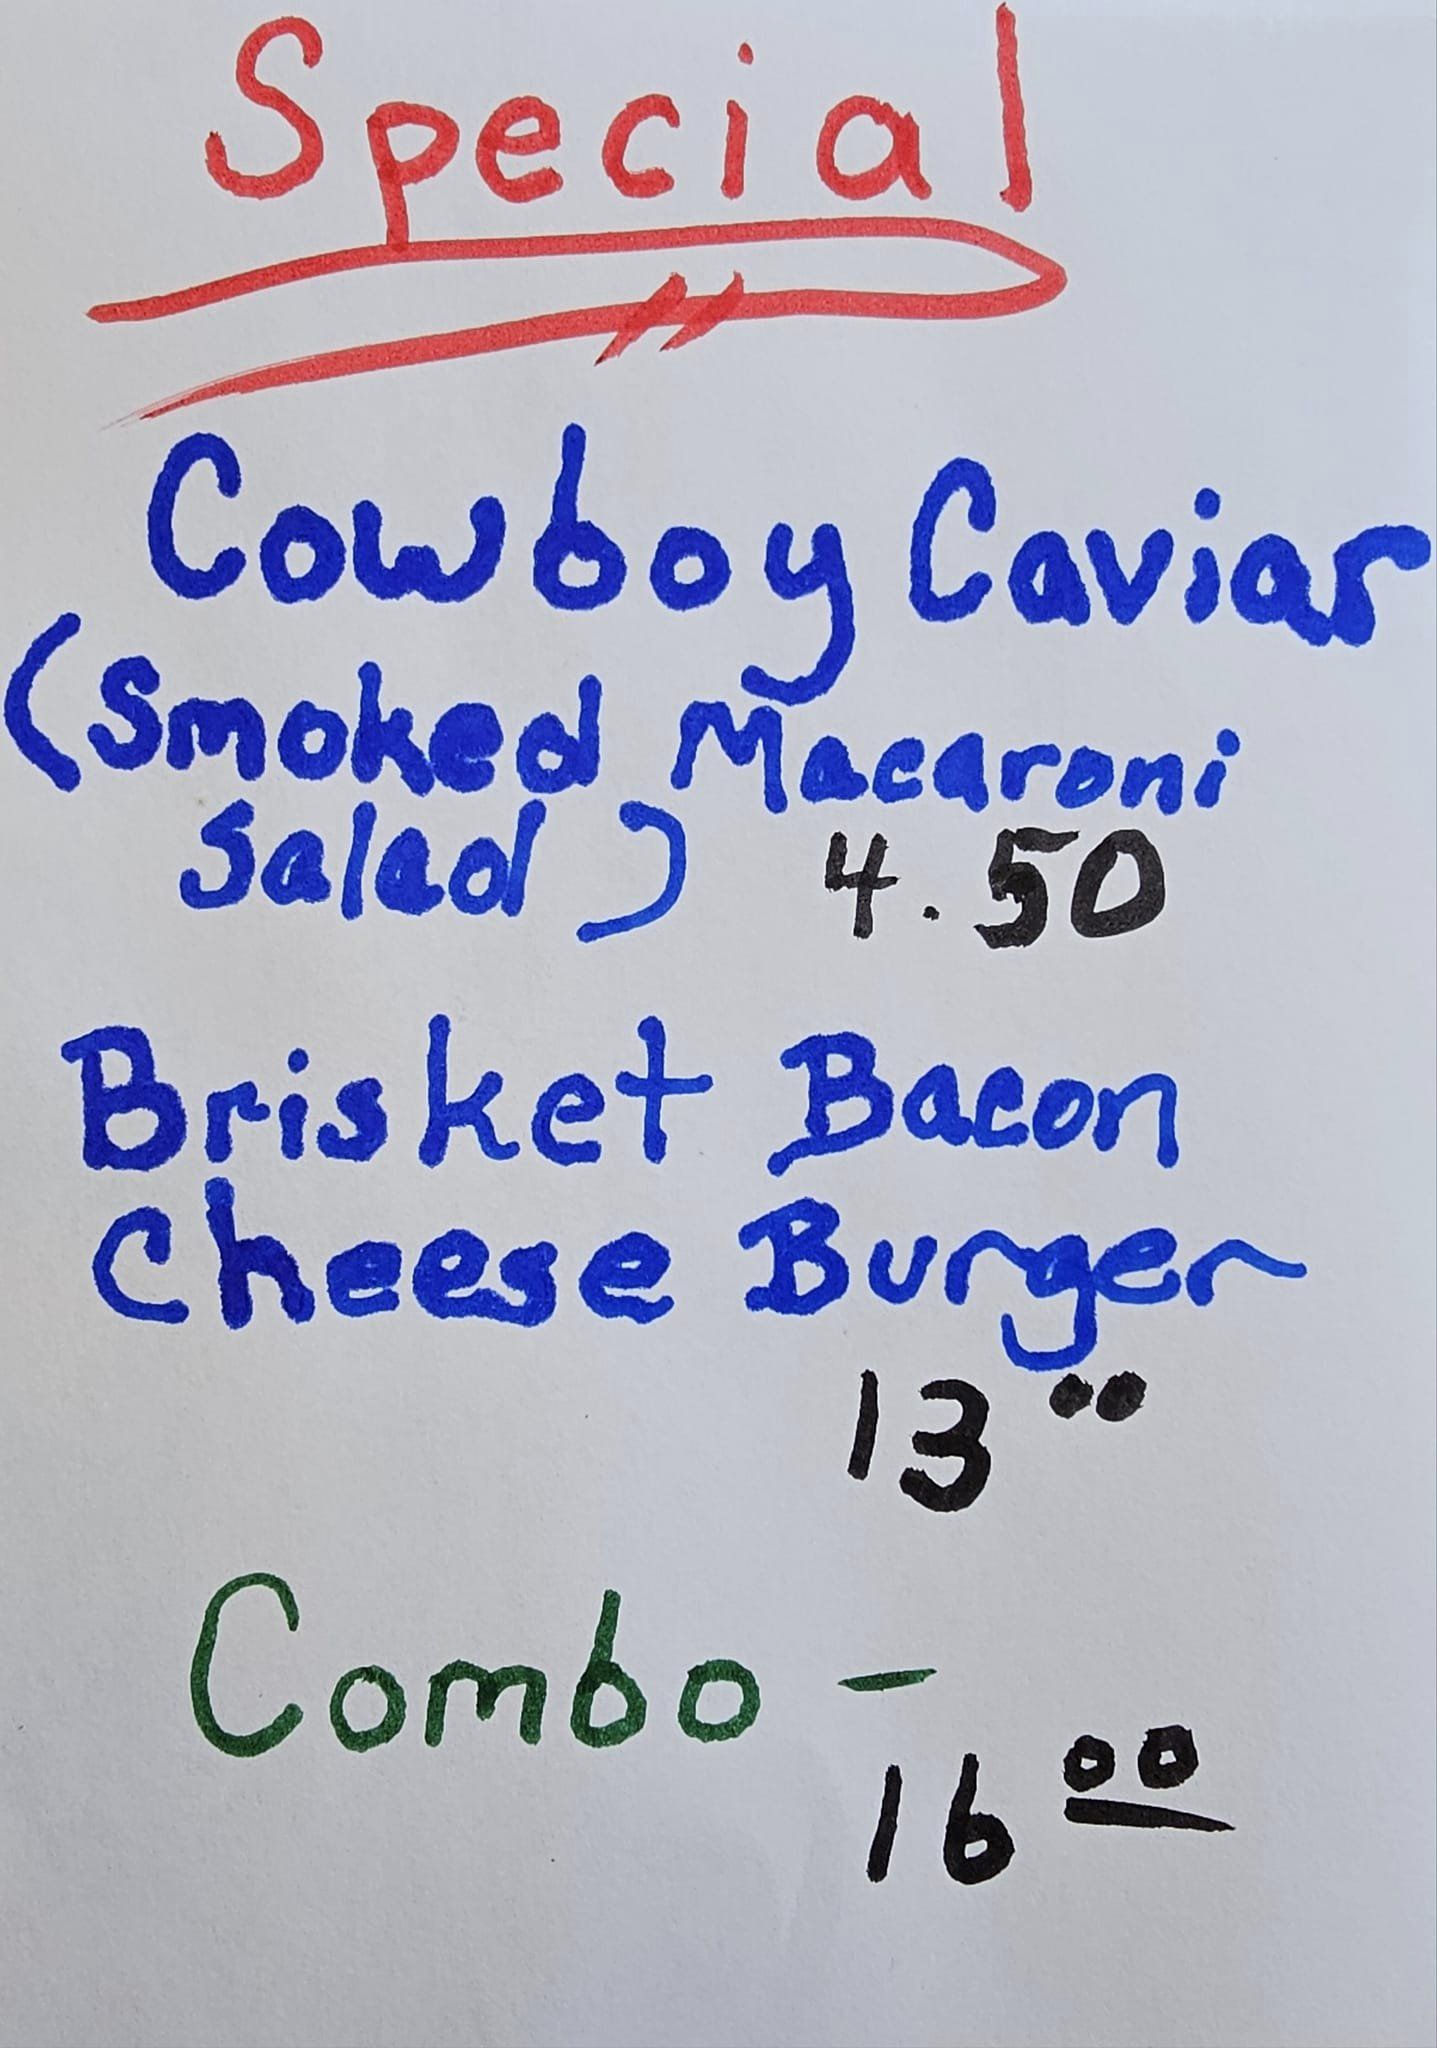 Special
Cowboy Caviar
(Smoked Macaroni
Salad) 4.50
Brisket Bacon
Cheese Burger
13 00
Combo -
16 00